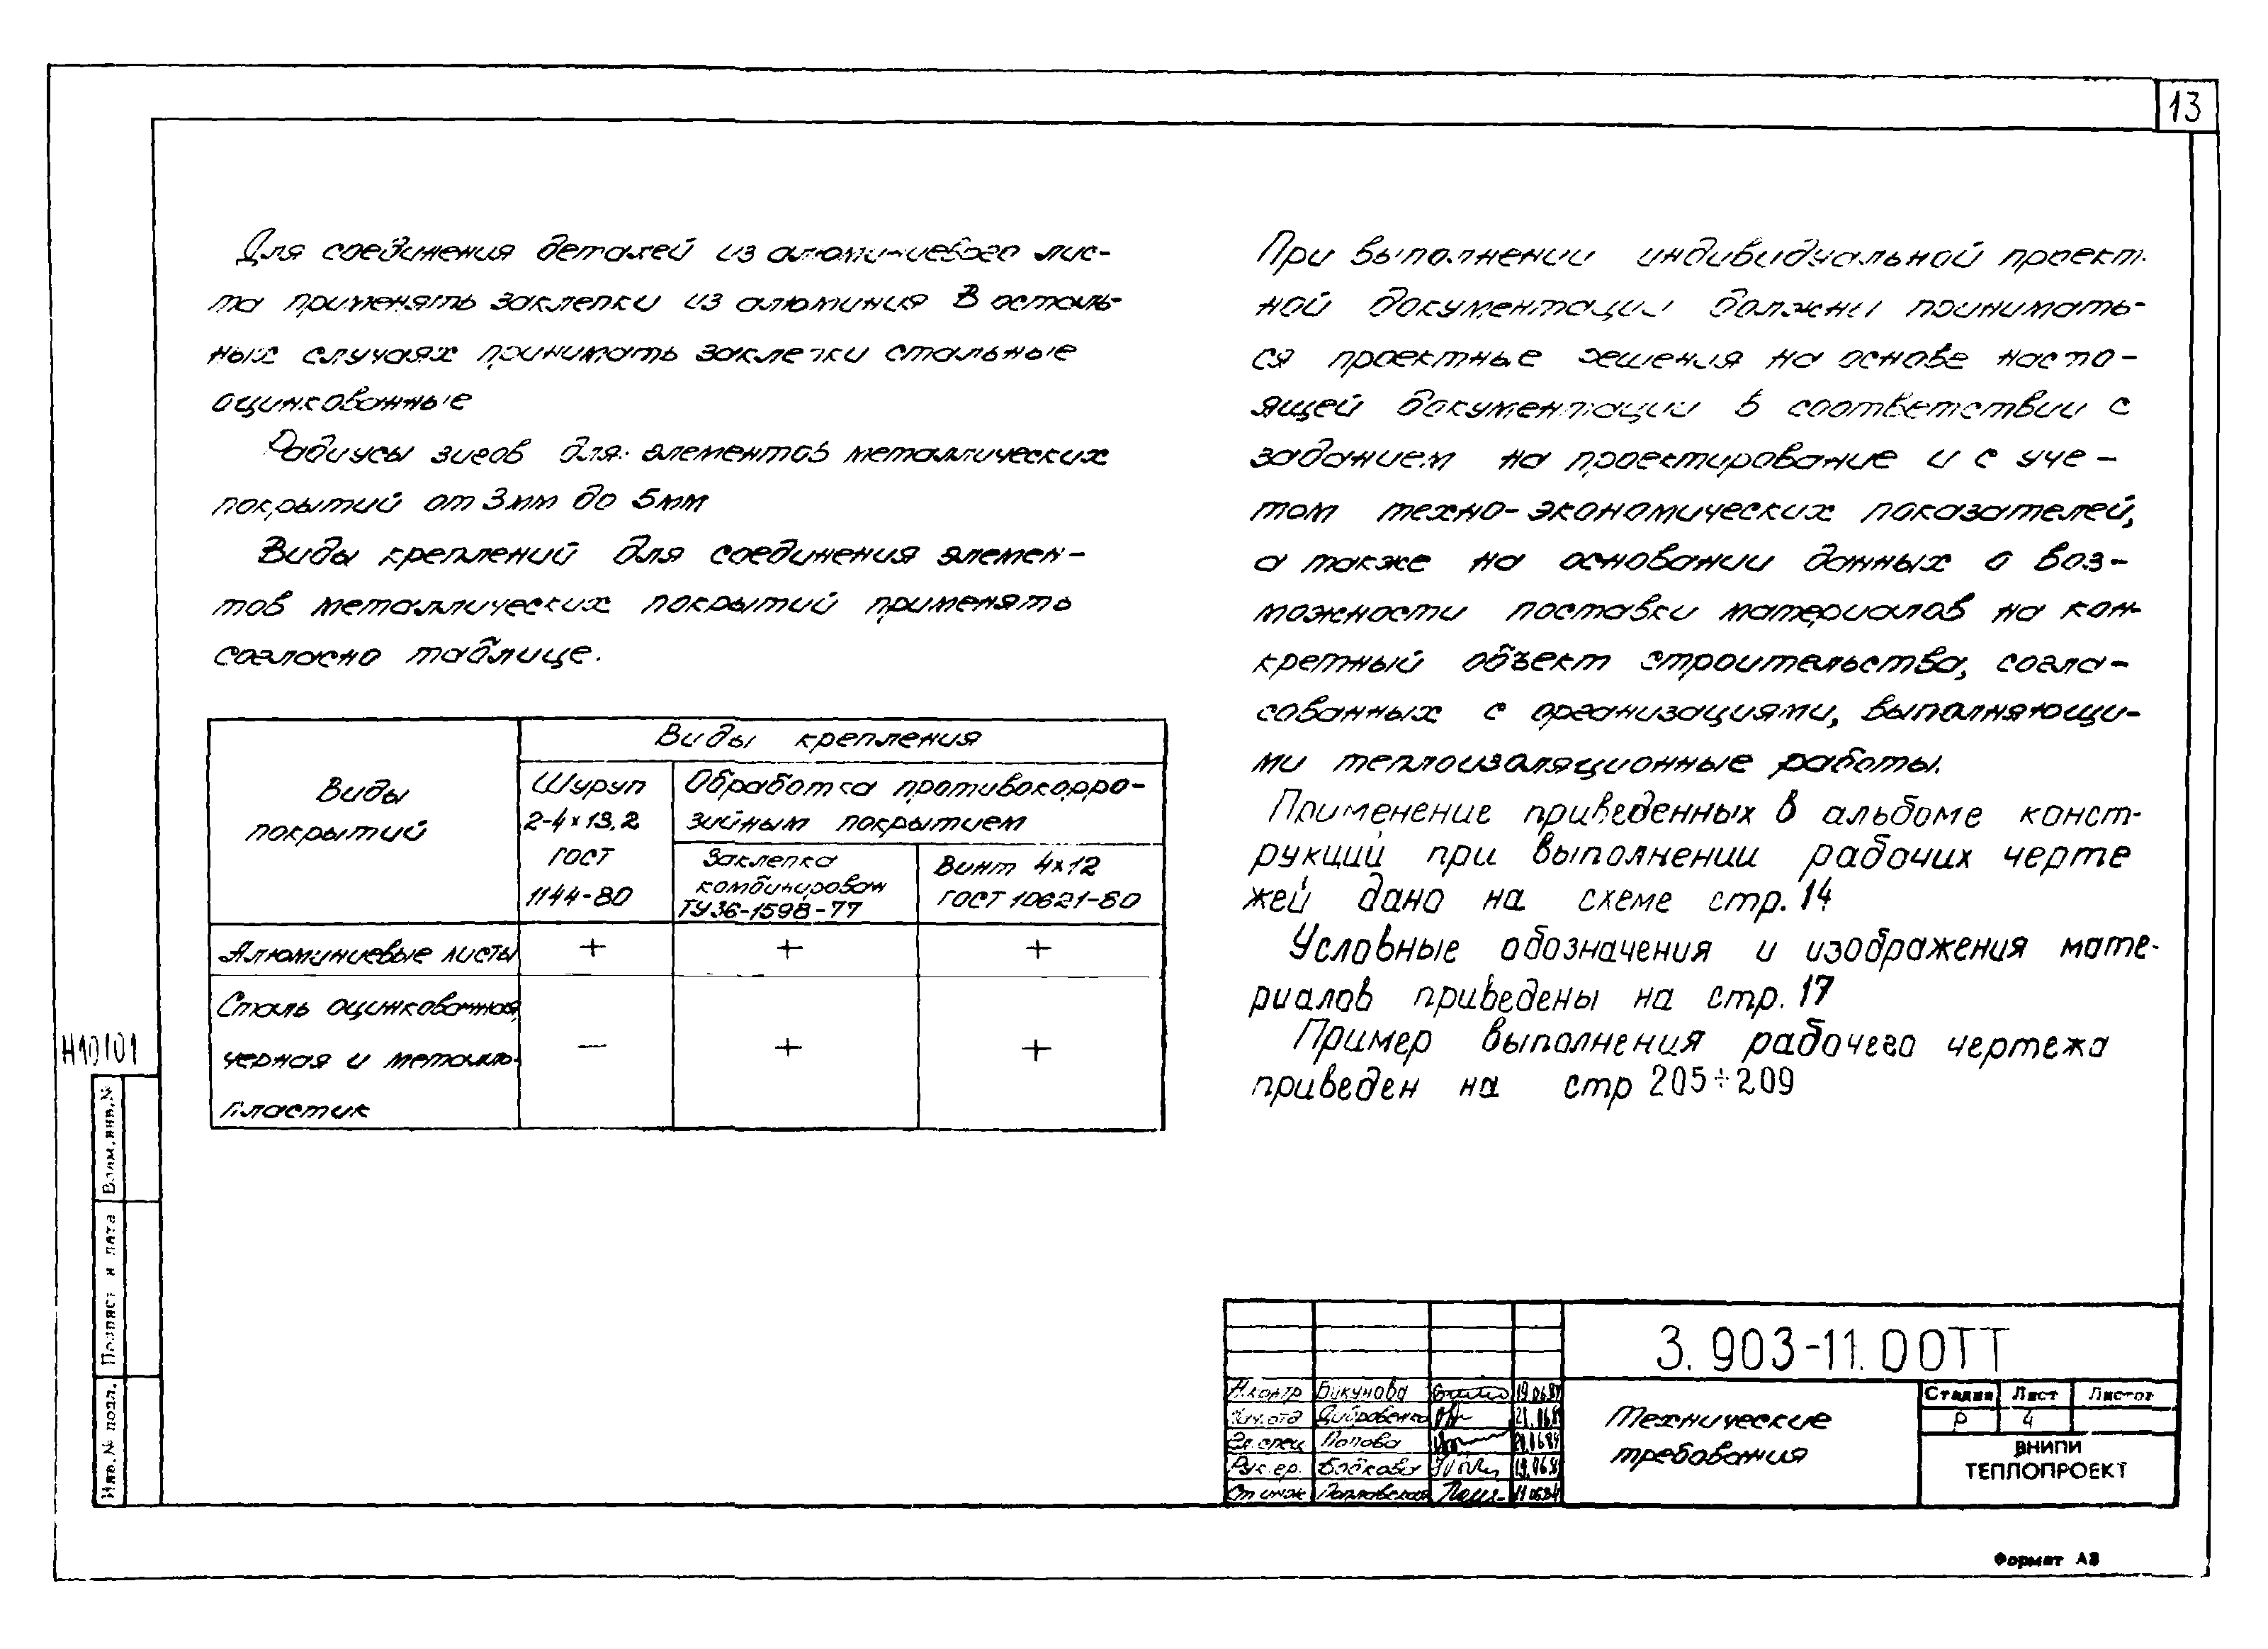 13
Для соединения деталей из алюминиевого лис-
та применять заклепки из алюминия В осталь-
ных случаях принимать заклепки стальные
оцинкованные
Радиусы зигов для элементов металлических
покрытий от 3мм до 5мм
Виды креплений для соединения элемен-
тов металлических покрытий применять
согласно таблице.
Виды покрытий
Виды крепления
Шуруп
2-4×13,2
ГОСТ
1144-80
Обработка противокорро-
зийным покрытием
Заклепка
комбинирован
ТУ36-1598-77
Винт 4×12
ГОСТ 10621-80
Алюминиевые листы + + +
Сталь оцинкованная,
черная и металло- — + +
пластик
При выполнении индивидуальной проект-
ной документации должны принимать-
ся проектные решения на основе насто-
ящей документации в соответствии с
заданием на проектирование и с уче-
том техно-экономических показателей,
а также на основании данных о воз-
можности поставки материалов на кон-
кретный объект строительства, согла-
сованных с организациями, выполняющи-
ми теплоизоляционные работы.
Применение приведенных в альбоме конст-
рукций при выполнении рабочих черте
жей дано на схеме стр. 14
Условные обозначения и изображения мате-
риалов приведены на стр. 17
Пример выполнения рабочего чертежа
приведен на стр 205÷209
Н10101
Взам.инв.№
Подпись и дата
Инв.№ подл.
3.903-11.00ТТ
Н.контр Бикунова
Гл.спец Попова
Рук.гр.
Ст инж
Технические
требования
Стадия Лист Листов
Р 4
ВНИПИ
ТЕПЛОПРОЕКТ
Формат А3